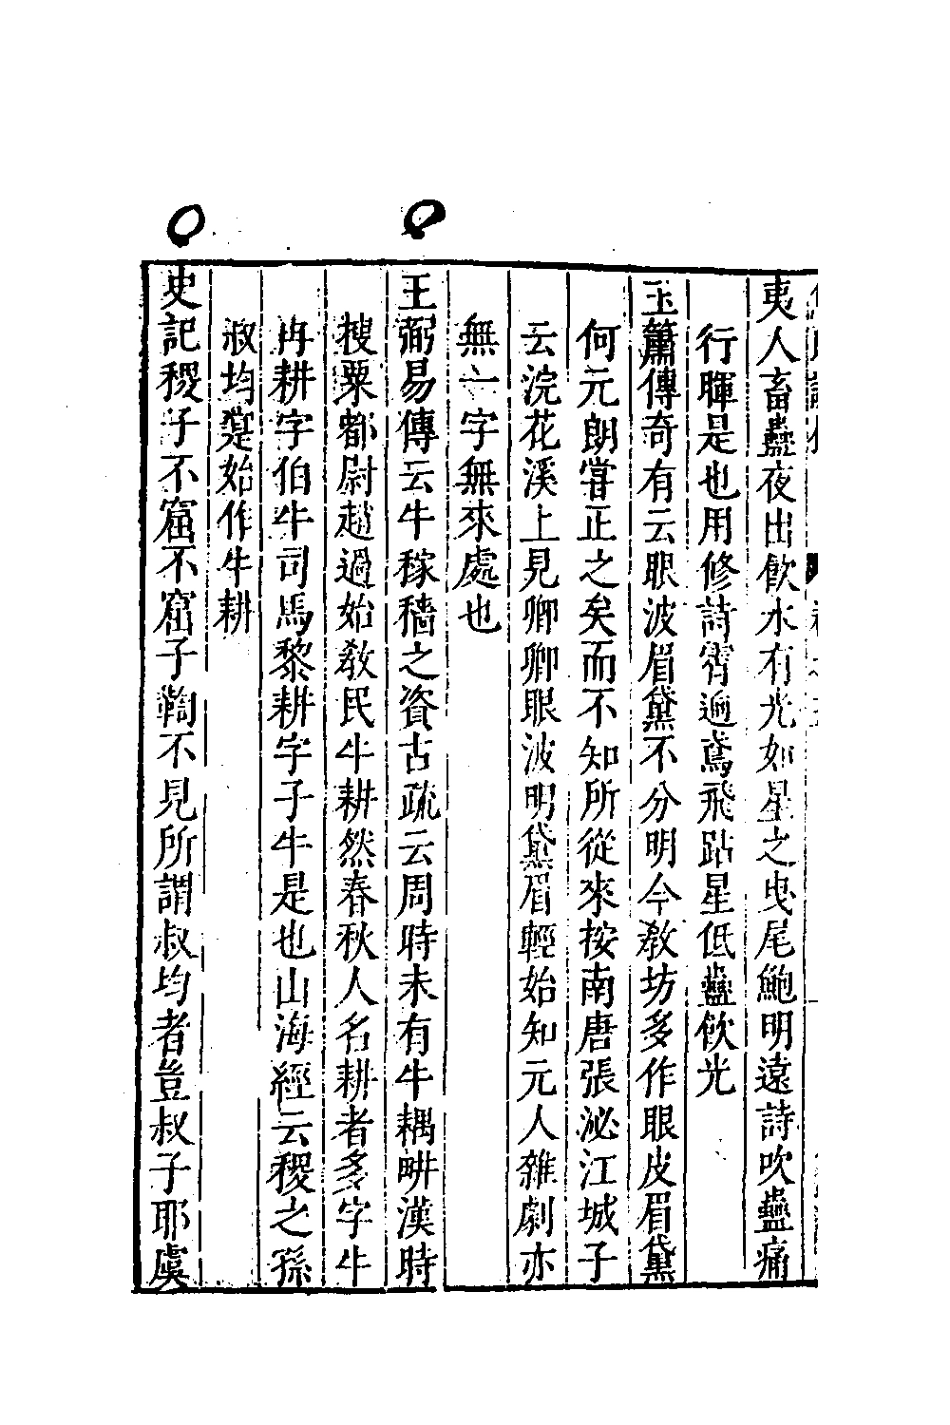 夷人畜蠱夜出飲水有光如星之曳尾鮑明遠詩吹蠱痛
行暉是也用修詩霄逈鳶飛跕星低蠱飲光
玉簫傳奇有云眼波眉黛不分明今教坊多作眼皮眉黛
何元朗嘗正之矣而不知所從來按南唐張泌江城子
云浣花溪上見卿卿眼波明黛眉輕始知元人雜劇亦
無一字無來處也
王弼易傳云牛稼穡之資古疏云周時未有牛耦畊漢時
搜粟都尉趙過始教民牛耕然春秋人名耕者多字牛
冉耕字伯牛司馬黎耕字子牛是也山海經云稷之孫
叔均寔始作牛耕
史記稷子不窋不窋子鞠不見所謂叔均者豈叔子耶虞